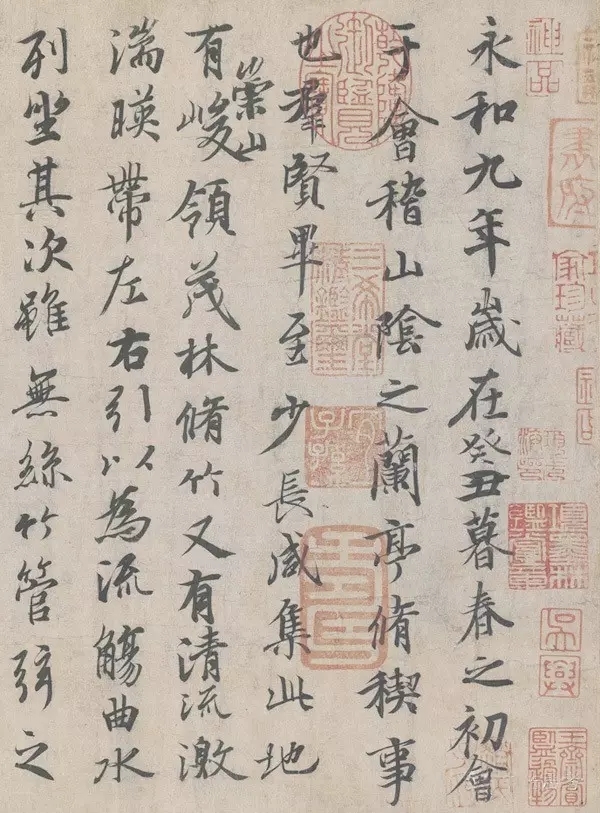 神品
項墨林鑑賞章
吳興
永和九年歲在癸丑暮春之初會
于會稽山陰之蘭亭脩稧事
也羣賢畢至少長咸集此地
有崇山峻領茂林脩竹又有清流激
湍暎帶左右引以為流觴曲水
列坐其次雖無絲竹管弦之
三希堂精鑑璽
宜子孫